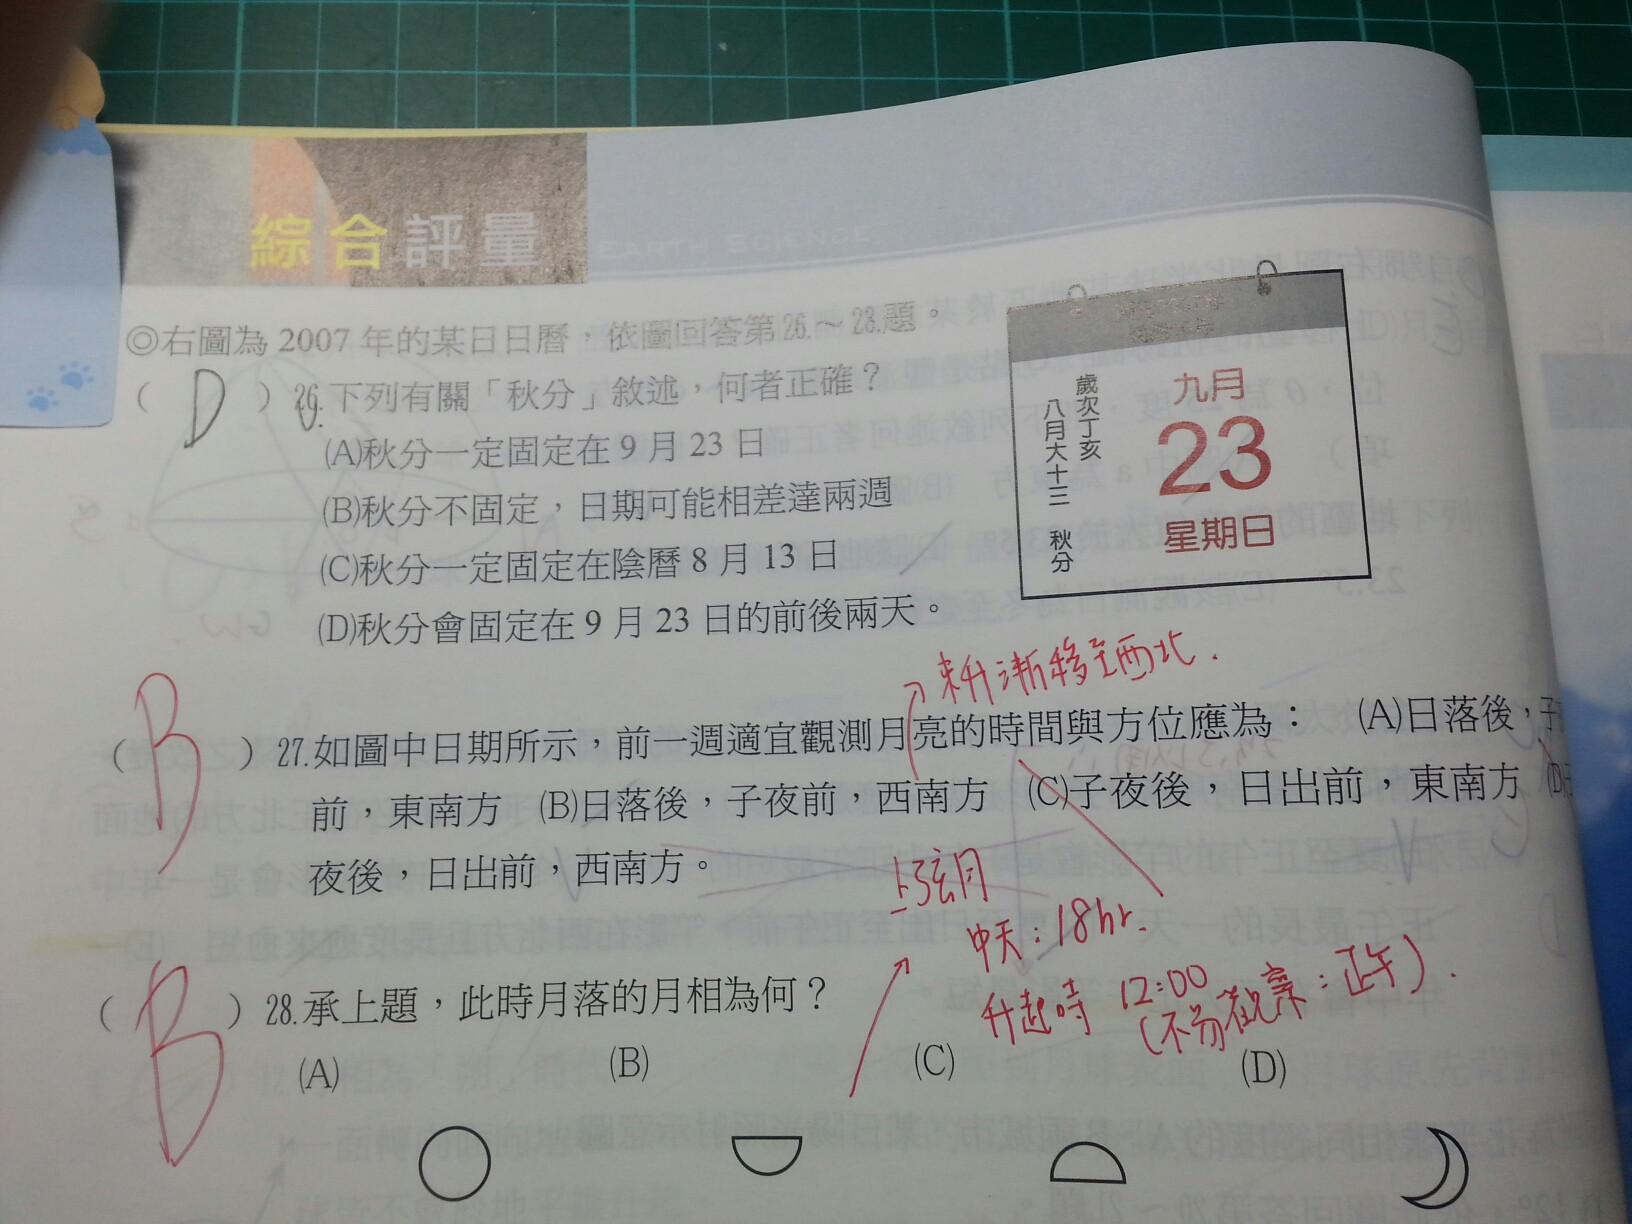 綜合評量
EARTH SCIENCE
◎右圖為 2007 年的某日日曆，依圖回答第 26.～28.題。
( D ) 26.下列有關「秋分」敘述，何者正確？
(A)秋分一定固定在 9 月 23 日
(B)秋分不固定，日期可能相差達兩週
(C)秋分一定固定在陰曆 8 月 13 日
(D)秋分會固定在 9 月 23 日的前後兩天。
九月
23
星期日
歲次丁亥
八月大十三 秋分
東升漸移至西北.
( B ) 27.如圖中日期所示，前一週適宜觀測月亮的時間與方位應為： (A)日落後，子
前，東南方 (B)日落後，子夜前，西南方 (C)子夜後，日出前，東南方 (D)
夜後，日出前，西南方。
上弦月
中天：18hr.
升起時 12:00
(不易觀察：正午).
( B ) 28.承上題，此時月落的月相為何？
(A) (B) (C) (D)